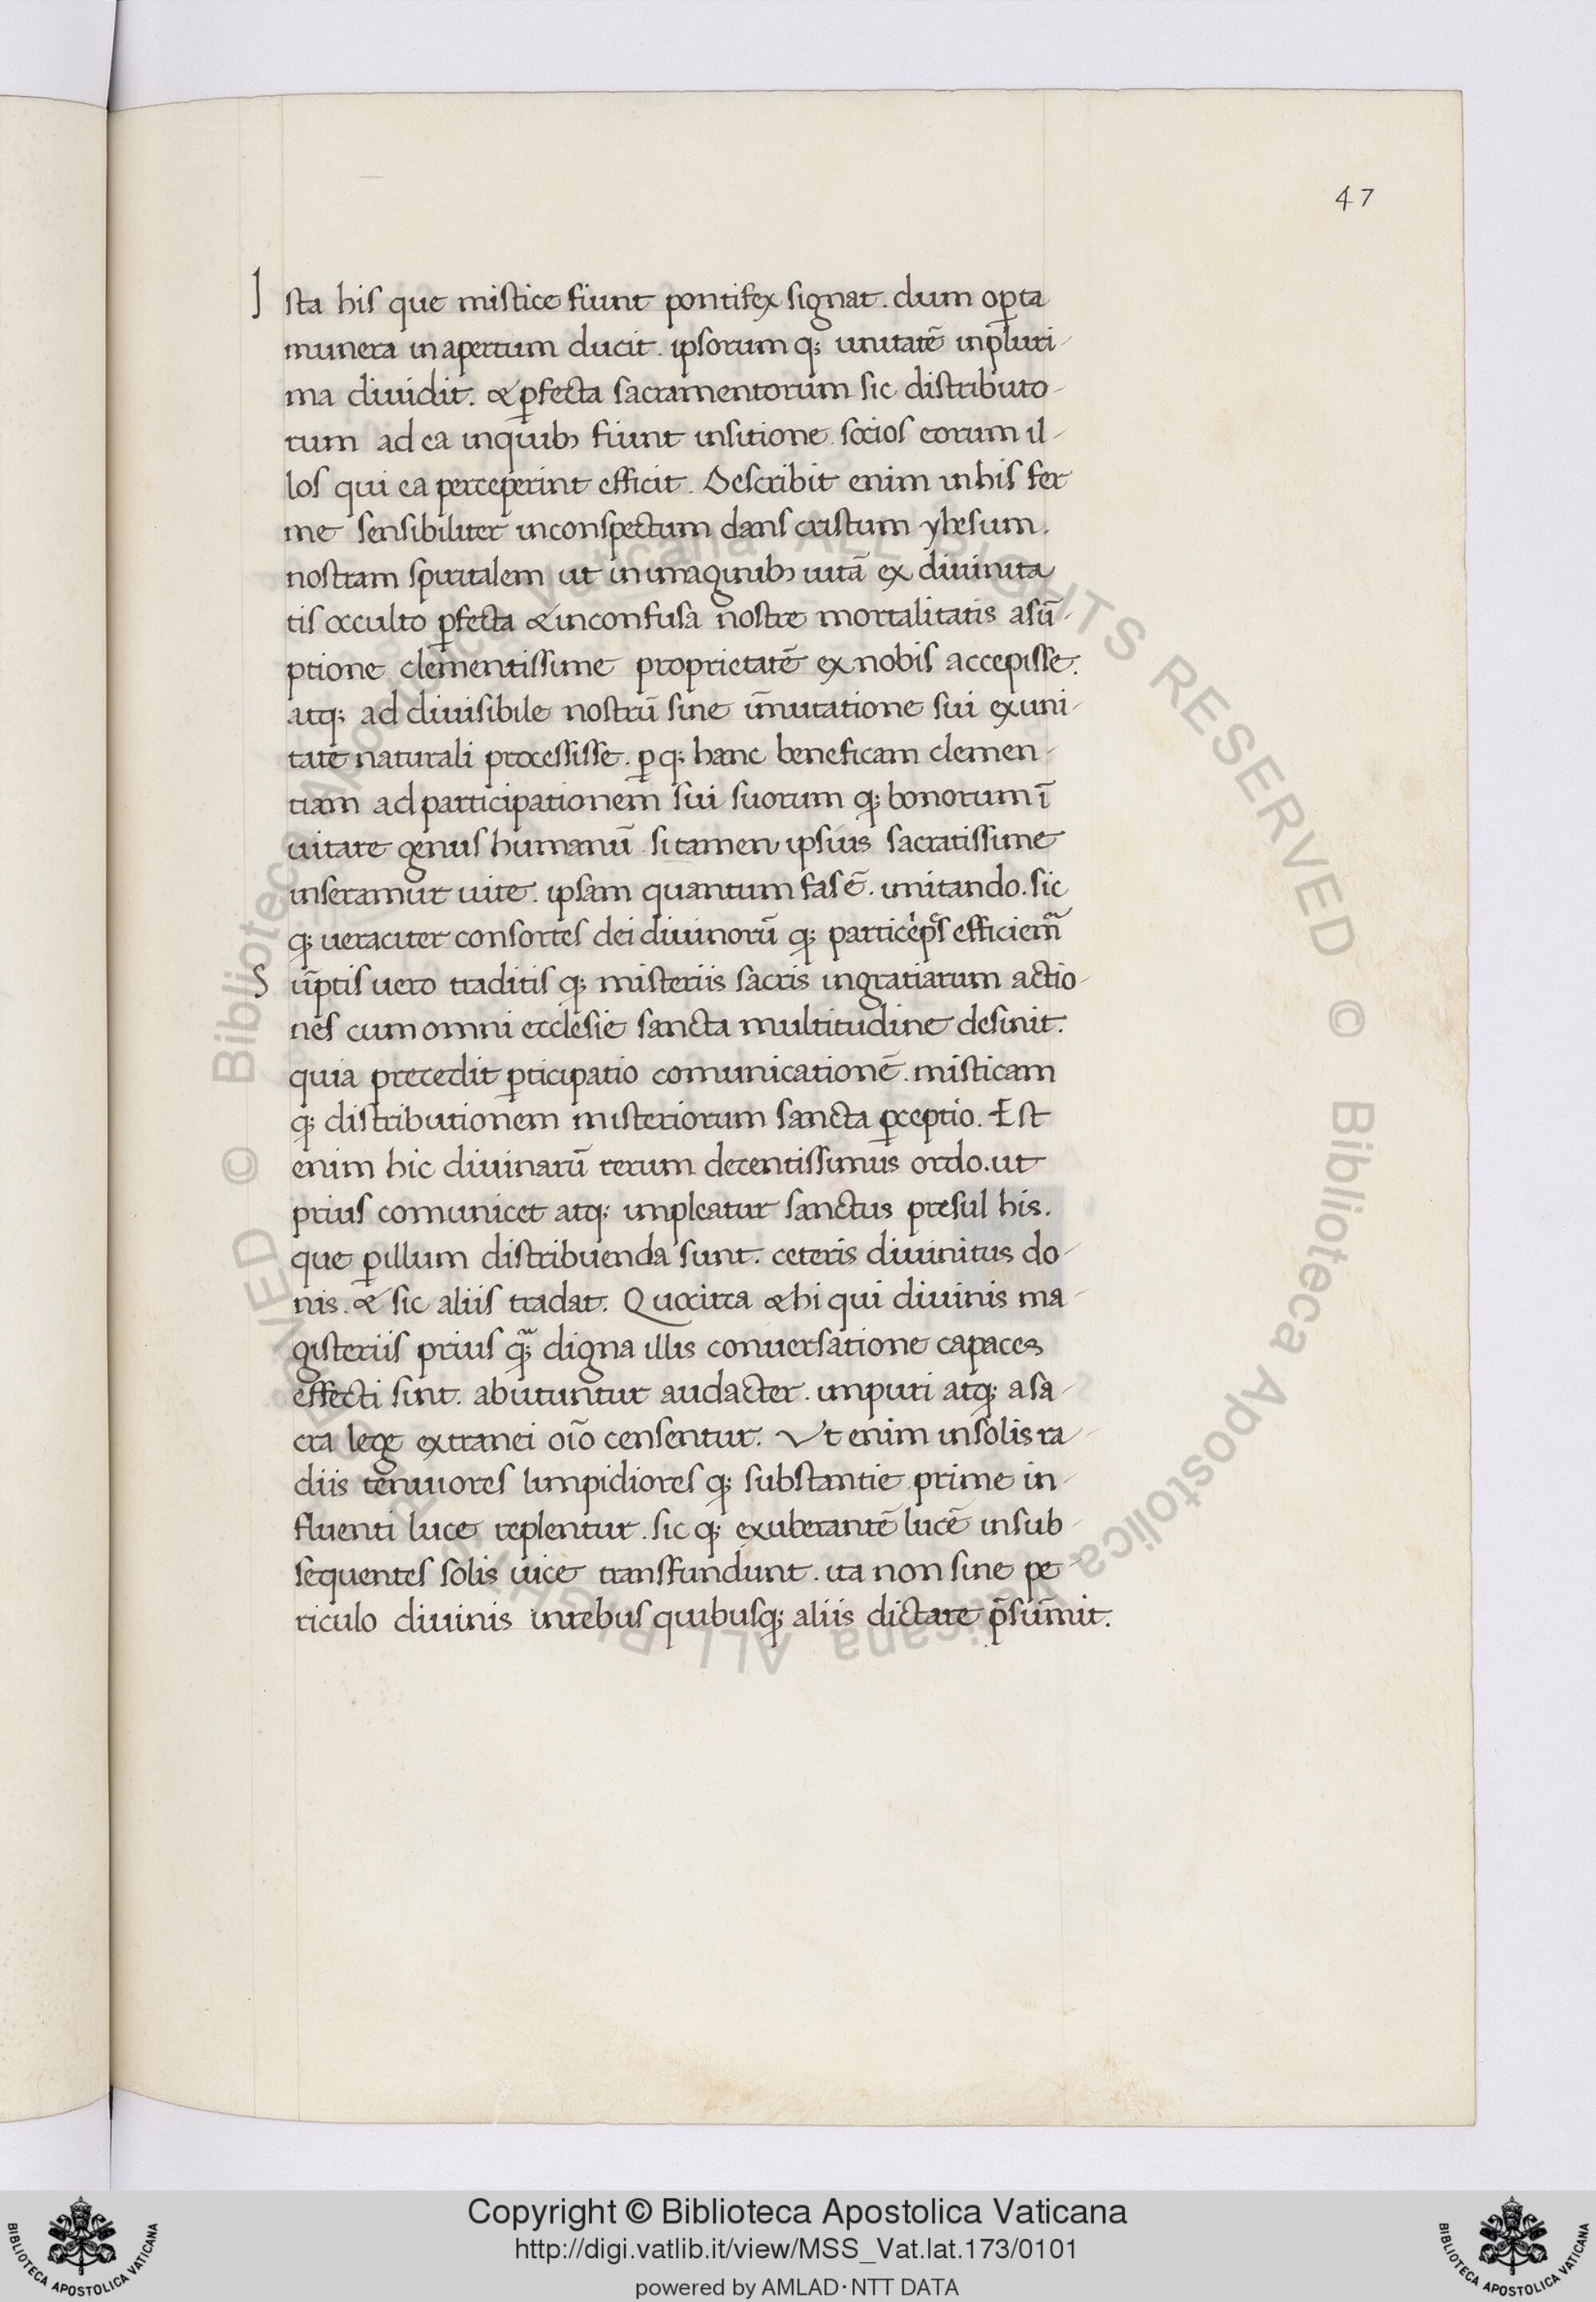 47
Ista his que mistice fiunt pontifex signat. dum opta
munera in apertum ducit. ipsorum q; unitatē in pluri-
ma diuidit. & p̱fecta sacramentorum sic distributo-
rum ad ea in quib; fiunt insitione socios eorum il-
los qui ea perceperint efficit. Describit enim in his fer
me sensibiliter in conspectum dans cristum yhesum.
nostram spiritalem ut in imaginib; uitā ex diuinita
tis occulto p̱fecta & inconfusa nostre mortalitatis asū-
ptione clementissime proprietatē ex nobis accepisse.
atq; ad diuisibile nostrū sine īmutatione sui ex uni-
tate naturali processisse. p̱ q; hanc beneficam clemen-
tiam ad participationem sui suorum q; bonorum ī
uitare genus humanū si tamen ipsius sacratissime
inseramur uite. ipsam quantum fas ē. imitando. sic
q; ueraciter consortes dei diuinorū q; participes efficiem̄
Sūptis uero traditis q; misteriis sacris in gratiarum actio-
nes cum omni ecclesie sancta multitudine desinit.
quia precedit p̱ticipatio comunicationē. misticam
q; distributionem misteriorum sancta p̱ceptio. Est
enim hic diuinarū rerum decentissimus ordo. ut
prius comunicet atq; impleatur sanctus presul his.
que p̱ illum distribuenda sunt. ceteris diuinitus do-
nis. & sic aliis tradat. Quocirca & hi qui diuinis ma-
gisteriis prius q;ᵃ digna illis conuersatione capaces
effecti sint. abutuntur audacter. impuri atq; a sa-
cra lege extranei oīo censentur. Vt enim in solis ra-
diis tenuiores limpidiores q; substantie prime in-
fluenti luce replentur. sic q; exuberantē lucē in sub-
sequentes solis uice transfundunt. ita non sine pe-
riculo diuinis in rebus quibusq; aliis dictare p̄sūmit.
© Biblioteca Apostolica Vaticana ALL RIGHTS RESERVED © Biblioteca Apostolica Vaticana ALL RIGHTS RESERVED
Copyright © Biblioteca Apostolica Vaticana
http://digi.vatlib.it/view/MSS_Vat.lat.173/0101
powered by AMLAD·NTT DATA
BIBLIOTECA APOSTOLICA VATICANA
BIBLIOTECA APOSTOLICA VATICANA